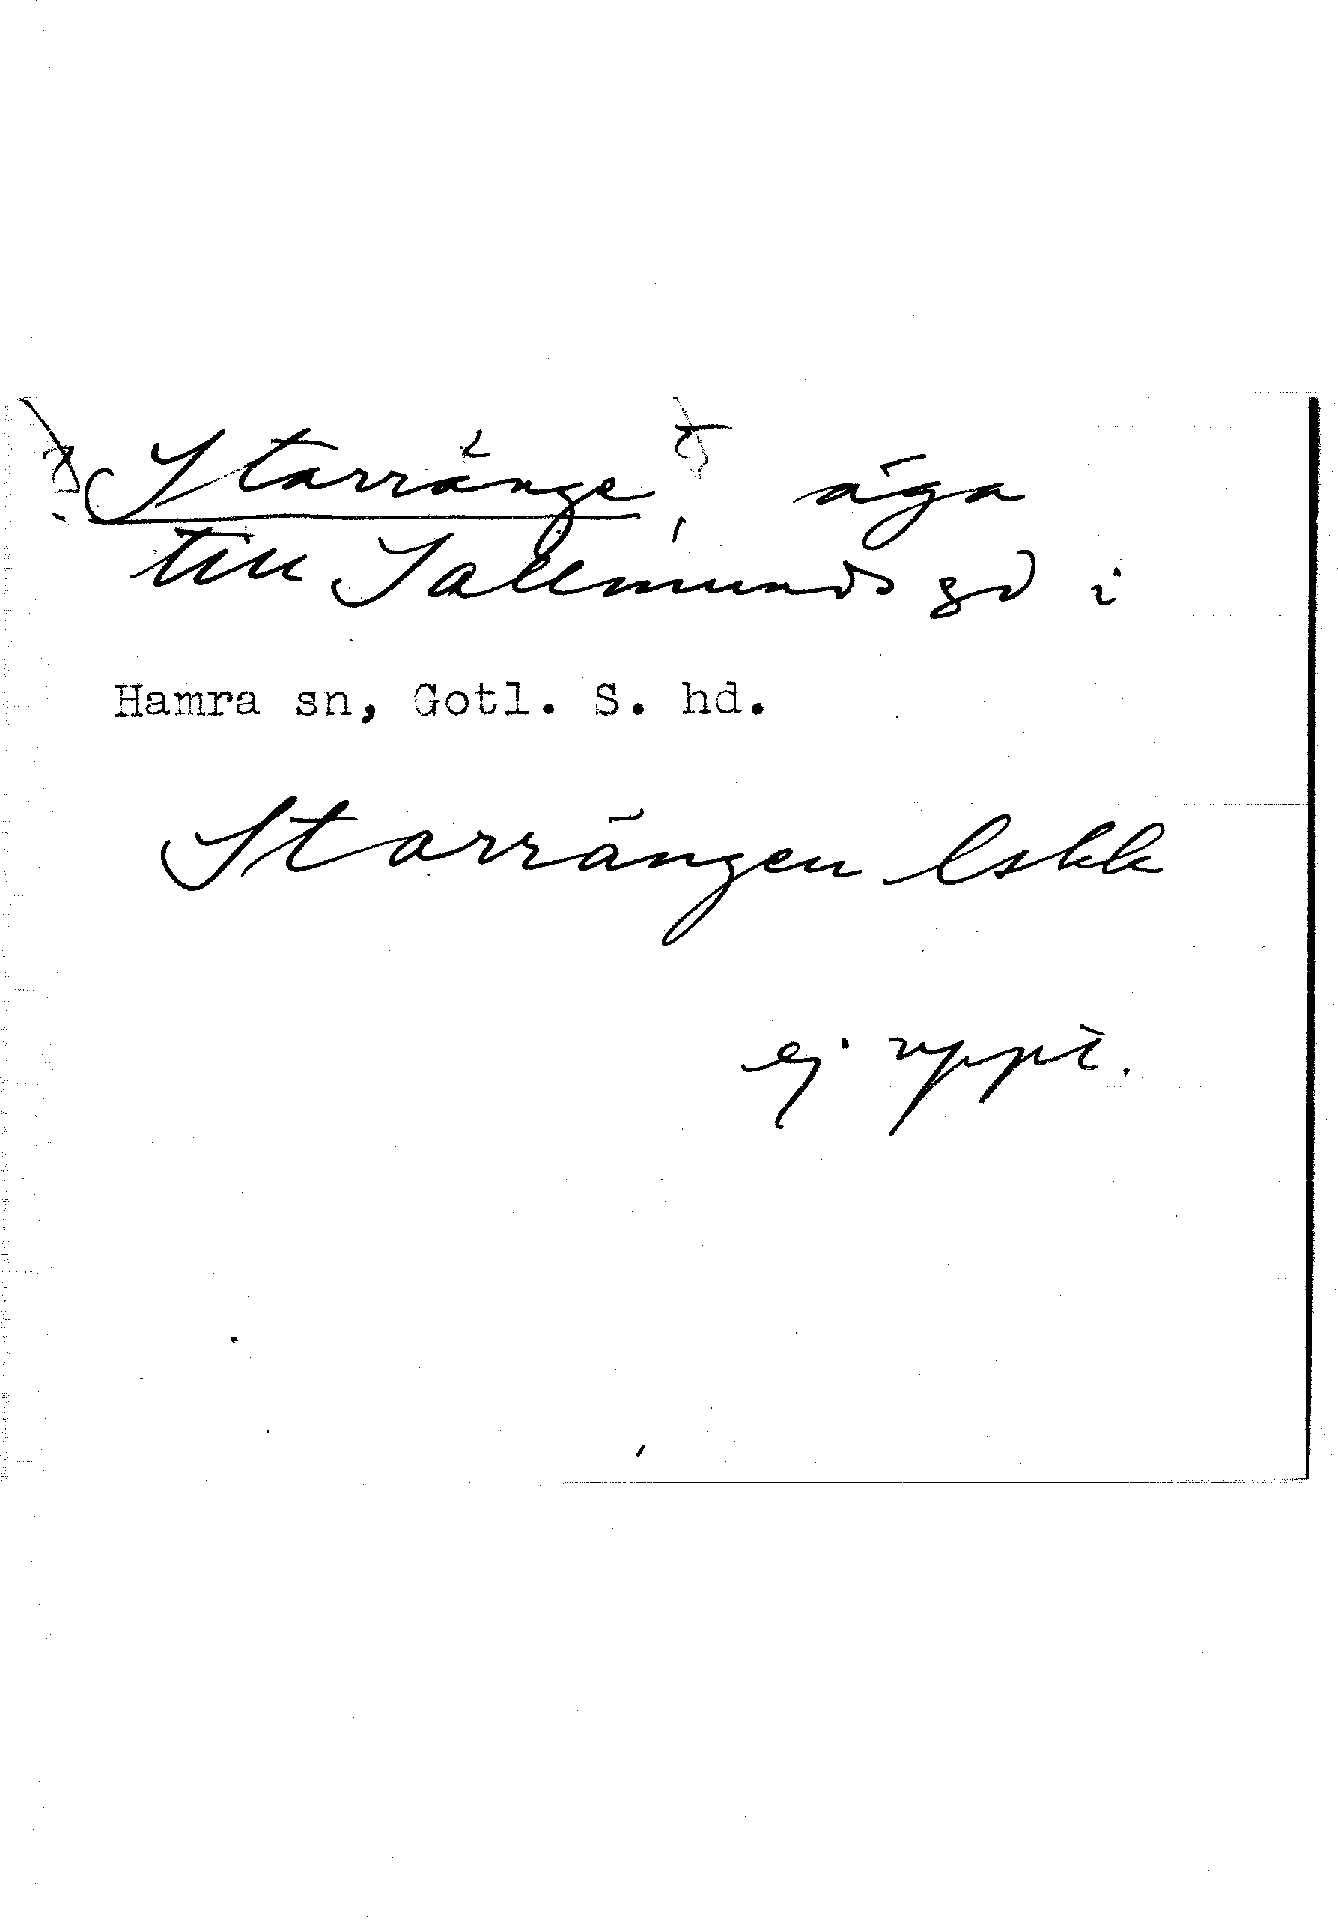 Starränge, äga
till Sallmunds gd i
Hamra sn, Gotl. S. hd.
Starrängen lskk
ej uppt.